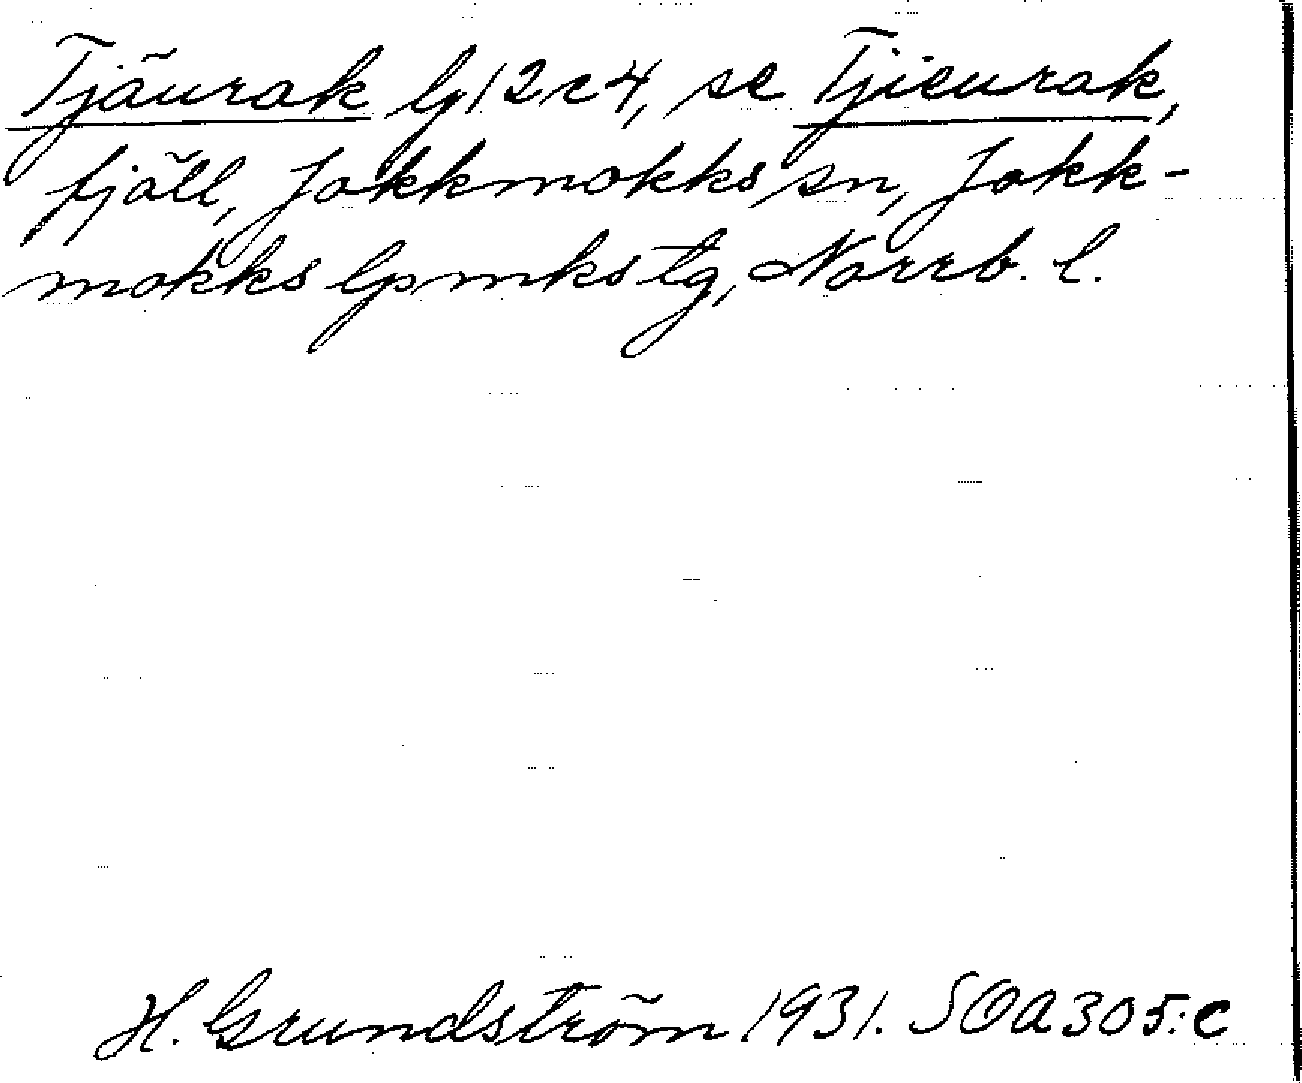 Tjäurak lg 12c4, se Tjieurak,
fjäll, Jokkmokks sn, Jokk-
mokks lpmks tg, Norrb. l.
H. Grundström 1931. SOA 305:c